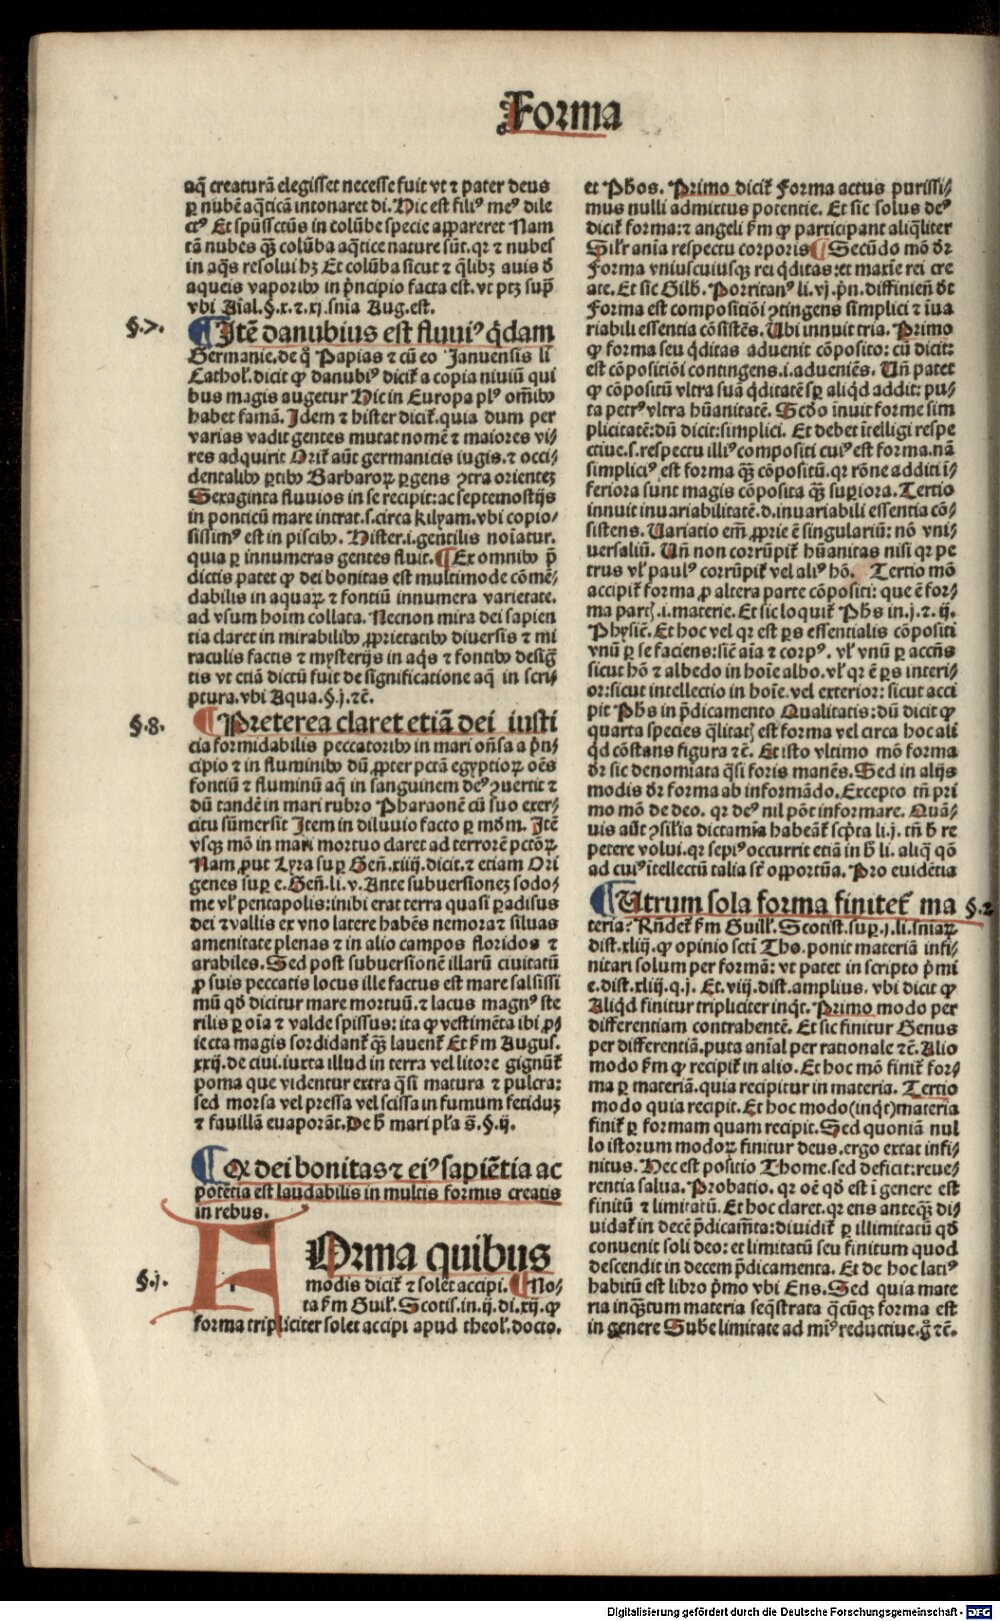 Forma
aq̃ creaturã elegisset necesse fuit vt ⁊ pater deus
ꝑ nubẽ aq̃ticã intonaret di. Hic est filiꝰ meꝰ dile
ctꝰ Et spũssctũs in colũbe specie appareret Nam
tã nubes q̃ʒ colũba aq̃tice nature sũt. qꝛ ⁊ nubes
in aq̃s resolui hʒ Et colũba sicut ⁊ q̃libʒ auis d̕
aqueis vaporibꝰ in p̃ncipio facta est. vt ptʒ sup̃
vbi Aĩal. §. x. ⁊. xj. sñia Aug. est.
§. 7.
¶ Itẽ danubius est fluuiꝰ q̃dam
Germanie. de q̊ Papias ⁊ cũ eo Januensis li
Cathol̕. dicit ꝙ danubiꝰ dicit̃ a copia niuiũ qui
bus magis augetur Hic in Europa plꝰ om̃ibꝰ
habet famã. Idem ⁊ hister dicit̃. quia dum per
varias vadit gentes mutat nomẽ ⁊ maiores vi⸗
res adquirit Orit̃ aũt germanicis iugis. ⁊ occi⸗
dentalibꝰ ꝑtibꝰ Barbaroꝝ ꝑgens ꝯtra orientez
Sexaginta fluuios in se recipit: ac septemostijs
in ponticũ mare intrat. s. circa kilyam. vbi copio⸗
sissimꝰ est in piscibꝰ. Hister. i. gentilis noĩatur.
quia ꝑ innumeras gentes fluit. ¶ Ex omnibꝰ p̃
dictis patet ꝙ dei bonitas est multimode cõmẽ⸗
dabilis in aquaꝝ ⁊ fontiũ innumera varietate.
ad vsum hoĩm collata. Necnon mira dei sapien
tia claret in mirabilibꝰ ꝓprietatibꝰ diuersis ⁊ mi
raculis factis ⁊ mysterijs in aq̃s ⁊ fontibꝰ desig̃
tis vt etiã dictũ fuit de significatione aq̃ in scri⸗
ptura. vbi Aqua. §. j. ⁊c̃.
§. 8.
¶ Preterea claret etiã dei iusti
cia formidabilis peccatoribꝰ in mari oñsa a p̃n⸗
cipio ⁊ in fluminibꝰ dũ ꝓpter pctã egyptioꝝ oẽs
fontiũ ⁊ fluminũ aq̃ in sanguinem deꝰ ꝯuertit ⁊
dũ tandẽ in mari rubro Pharaonẽ cũ suo exer⸗
citu sũmersit Item in diluuio facto ꝑ mõm. Itẽ
vsqꝫ mõ in mari mortuo claret ad terrorẽ pctõꝝ.
Nam ꝓut Lyra suꝑ Geñ. xiiij. dicit. ⁊ etiam Ori
genes suꝑ e. Geñ. li. v. Ante subuersionez sodo⸗
me vl̕ pentapolis: inibi erat terra quasi ꝑadisus
dei ⁊ vallis ex vno latere habẽs nemora ⁊ siluas
amenitate plenas ⁊ in alio campos floridos ⁊
arabiles. Sed post subuersionẽ illarũ ciuitatũ
ꝓ suis peccatis locus ille factus est mare salsissi
mũ qd̕ dicitur mare mortuũ. ⁊ lacus magnꝰ ste
rilis ꝑ oĩa ⁊ valde spissus: ita ꝙ vestimẽta ibi ꝓ⸗
iecta magis sordidant̃ q̃ʒ lauent̃ Et s̃m Augus.
xxij. de ciui. iuxta illud in terra vel litore gignũt̃
poma que videntur extra q̃si matura ⁊ pulcra:
sed morsa vel pressa vel scissa in fumum fetiduʒ
⁊ fauillã euaporãt. De h̕ mari pl̃a s̃. §. ij.
¶ Qꝙ dei bonitas ⁊ eiꝰ sapiẽtia ac
potẽtia est laudabilis in multis formis creatis
in rebus.
§. j.
FOrma quibus
modis dicit̃ ⁊ solet accipi. ¶ No⸗
ta s̃m Guil̕. Scotis. in. ij. di. xij. ꝙ
forma tripliciter solet accipi apud theol̕. docto.
et Phos. Primo dicit̃ Forma actus purissi⸗
mus nulli admixtus potentie. Et sic solus deꝰ
dicit̃ forma: ⁊ angeli s̃m ꝙ participant aliq̃liter
Sil̕r anĩa respectu corporis ¶ Secũdo mõ d̕r
Forma vniuscuiusqꝫ rei q̃ditas: et maxĩe rei cre
ate. Et sic Gilb. Porritanꝰ li. vj. p̃n. diffinieñ d̕t
Forma est compositiõi ꝯtingens simplici ⁊ ĩua
riabili essentia cõsistẽs. Ubi innuit tria. Primo
ꝙ forma seu q̃ditas aduenit cõposito: cũ dicit:
est cõpositiõi contingens. i. adueniẽs. Uñ patet
ꝙ cõpositũ vltra suã q̃ditatẽ sꝑ aliq̃d addit: pu⸗
ta petrꝰ vltra hũanitatẽ. Scd̕o ĩnuit forme sim
plicitatẽ: dũ dicit: simplici. Et debet ĩtelligi respe
ctiue. s. respectu illiꝰ compositi cuiꝰ est forma. nã
simpliciꝰ est forma q̃ʒ cõpositũ. qꝛ rõne additi ĩ⸗
feriora sunt magis cõposita q̃ʒ suꝑiora. Tertio
innuit inuariabilitatẽ. d. inuariabili essentia cõ⸗
sistens. Uariatio em̃ ꝓprie ẽ singulariũ: nõ vni⸗
uersaliũ. Uñ non corrũpit̃ hũanitas nisi qꝛ pe
trus vl̕ paulꝰ corrũpit̃ vel aliꝰ hõ. Tertio mõ
accipit̃ forma ꝓ altera parte cõpositi: que ẽ for⸗
ma partꝭ. i. materie. Et sic loquit̃ Phs in. j. ⁊. ij.
Physic̃. Et hoc vel qꝛ est ꝑs essentialis cõpositi
vnũ ꝑ se faciens: sic̃ aĩa ⁊ corpꝰ. vl̕ vnũ ꝑ acc̃ns
sicut hõ ⁊ albedo in hoĩe albo. vl̕ qꝛ ẽ ꝑs interi⸗
or: sicut intellectio in hoĩe. vel exterior: sicut acci
pit Phs in p̃dicamento Qualitatis: dũ dicit ꝙ
quarta species q̃litatꝭ est forma vel circa hoc ali
q̃d cõstans figura ⁊c̃. Et isto vltimo mõ forma
d̕r sic denomĩata q̃si foris manẽs. Sed in alijs
modis d̕r forma ab informãdo. Excepto tñ pri
mo mõ de deo. qꝛ deꝰ nil põt informare. Quã⸗
uis aũt ꝯsil̕ia dictamĩa habeãt̃ sc̃pta li. j. tñ h̕ re
petere volui. qꝛ sepiꝰ occurrit etiã in h̕ li. aliq̃ qõ
ad cuiꝰ ĩtellectũ talia st̃ oꝑportũa. Pro euidẽtia
§. 2
¶ Utrum sola forma finitet̃ ma
teria? Rñdet̃ s̃m Guill̕. Scotist. suꝑ. j. li. sñiaꝝ
dist. xliij. ꝙ opinio scti Tho. ponit materiã infi⸗
nitari solum per formã: vt patet in scripto p̃mi
e. dist. xliij. q. j. Et. viij. dist. amplius. vbi dicit ꝙ
Aliq̃d finitur tripliciter inq̃t. Primo modo per
differentiam contrahentẽ. Et sic finitur Genus
per differentiã. puta anĩal per rationale ⁊c̃. Alio
modo s̃m ꝙ recipit̃ in alio. Et hoc mõ finit̃ for⸗
ma ꝑ materiã. quia recipitur in materia. Tertio
modo quia recipit. Et hoc modo (inq̃t) materia
finit̃ ꝑ formam quam recipit. Sed quoniã nul
lo istorum modoꝝ finitur deus. ergo extat infi⸗
nitus. Hec est positio Thome. sed deficit: reue⸗
rentia salua. Probatio. qꝛ oẽ qd̕ est ĩ genere est
finitũ ⁊ limitatũ. Et hoc claret. qꝛ ens anteq̃ʒ di⸗
uidat̃ in decẽ p̃dicam̃ta: diuidit̃ ꝑ illimitatũ qd̕
conuenit soli deo: et limitatũ seu finitum quod
descendit in decem p̃dicamenta. Et de hoc latiꝰ
habitũ est libro p̃mo vbi Ens. Sed quia mate
ria inq̃ʒtum materia seq̃strata q̃cũqꝫ forma est
in genere Sube limitate ad miꝰ reductiue. g̊ ⁊c̃.
Digitalisierung gefördert durch die Deutsche Forschungsgemeinschaft - DFG